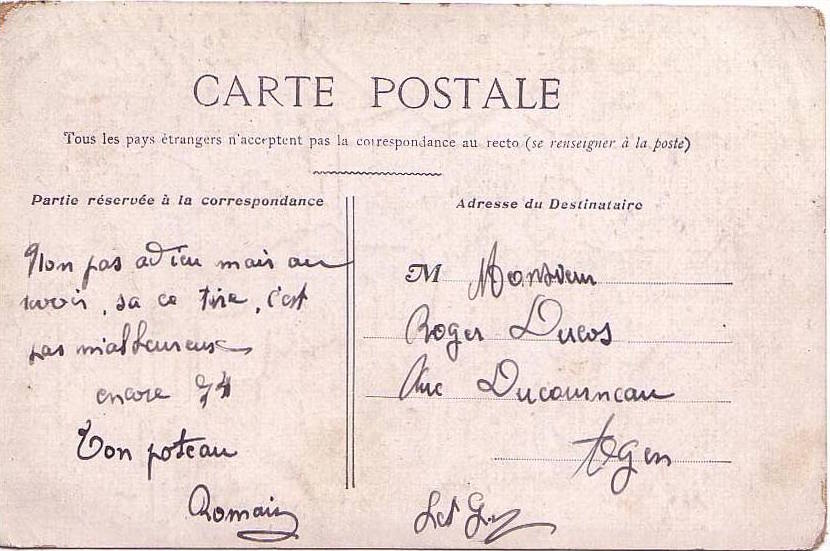 CARTE POSTALE
Tous les pays étrangers n'acceptent pas la correspondance au recto (se renseigner à la poste)
Partie réservée à la correspondance
Non pas adieu mais au
revoir, sa ce tire, c'est
pas malheureuse
encore 74
Ton poteau
Romain
Adresse du Destinataire
M Monsieur
Roger Ducos
Rue Ducourneau
Agen
Lot G.